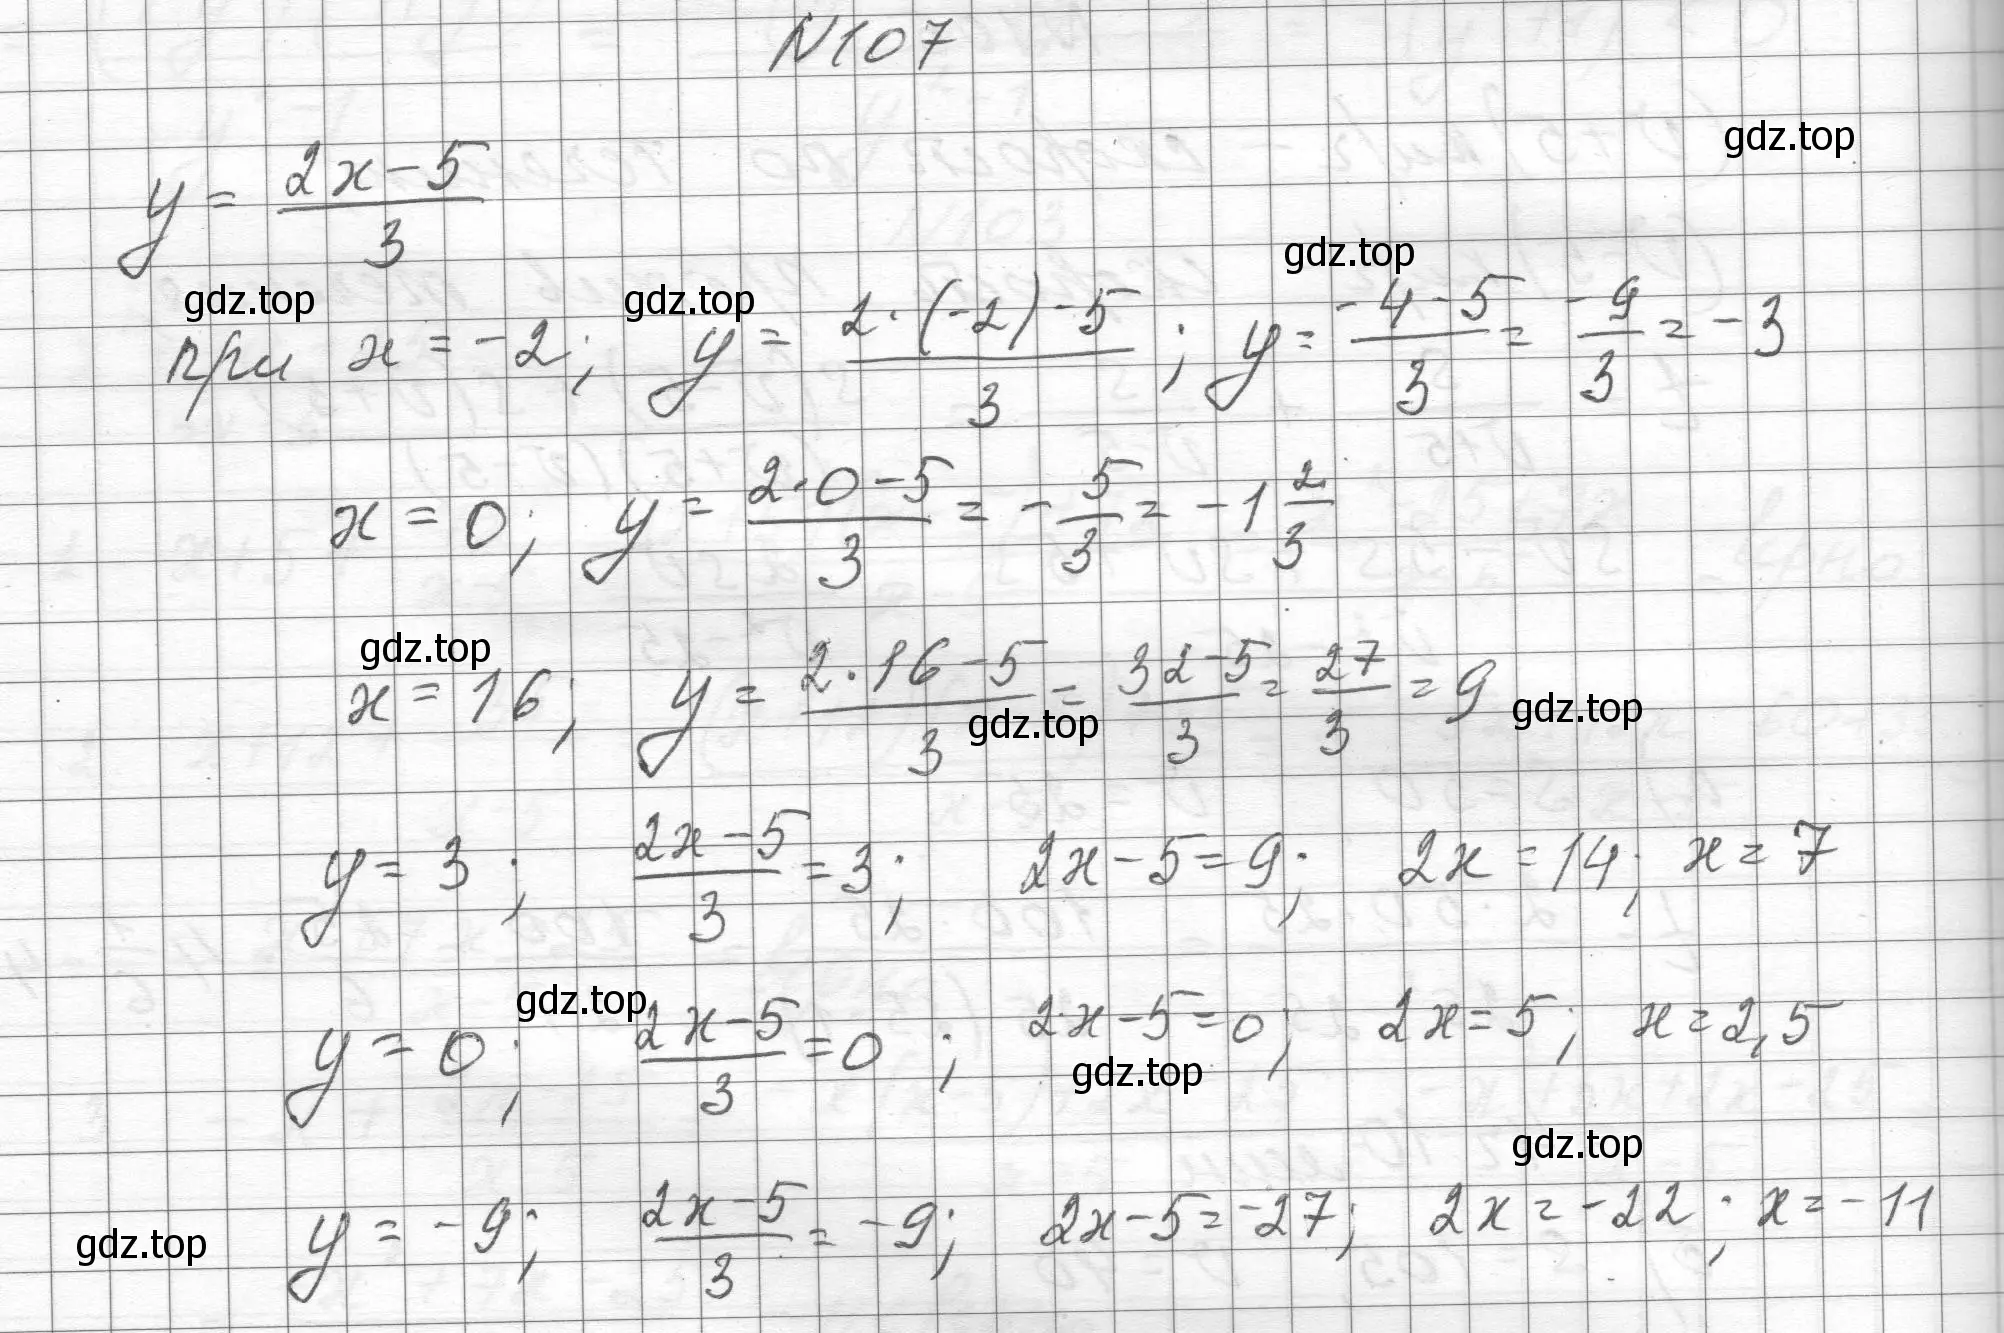 N107
gdz.top
y = \frac{2x-5}{3}
gdz.top
gdz.top gdz.top
при x = -2; y = \frac{2·(-2)-5}{3}; y = \frac{-4-5}{3} = \frac{-9}{3} = -3
x = 0; y = \frac{2·0-5}{3} = -\frac{5}{3} = -1\frac{2}{3}
gdz.top
x = 16; y = \frac{2·16-5}{3} = \frac{32-5}{3} = \frac{27}{3} = 9
gdz.top gdz.top
y = 3; \frac{2x-5}{3} = 3; 2x-5 = 9; 2x = 14; x = 7
gdz.top
y = 0; \frac{2x-5}{3} = 0; 2x-5 = 0; 2x = 5; x = 2,5
gdz.top
gdz.top
y = -9; \frac{2x-5}{3} = -9; 2x-5 = -27; 2x = -22; x = -11
gdz.top